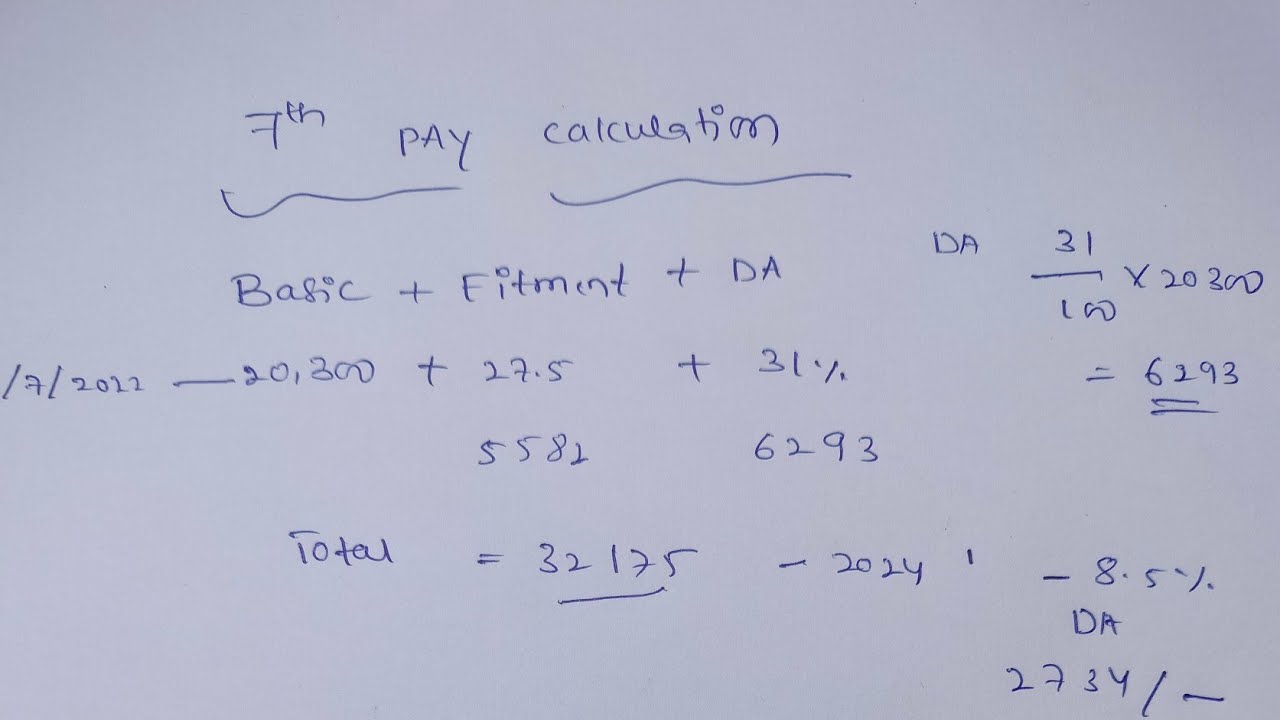 7th PAY calculation
Basic + Fitment + DA
/7/2022 — 20,300 + 27.5 + 31%
5582 6293
Total = 32175 - 2024 ' - 8.5%
DA
2734/-
DA 31/100 × 20300
= 6293